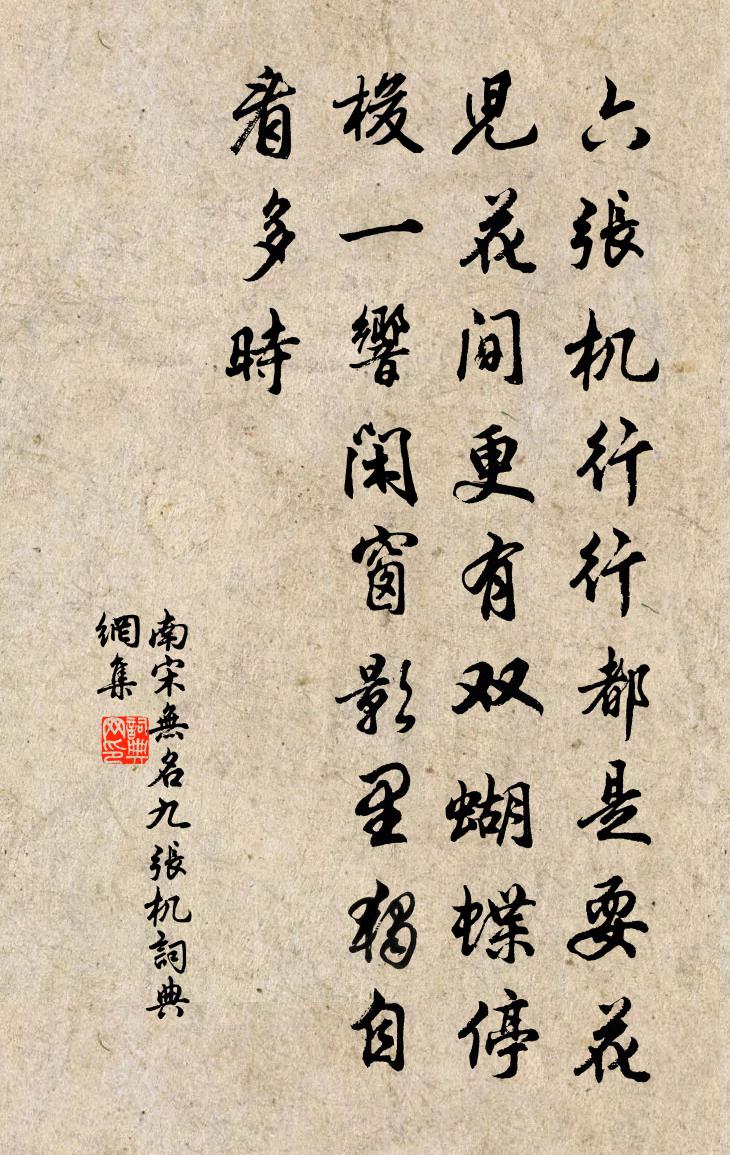 六張机行行都是耍花
児花间更有双蝴蝶停
梭一響闲窗影里独自
看多時
南宋無名九張机詞典
網集
詞典
网印